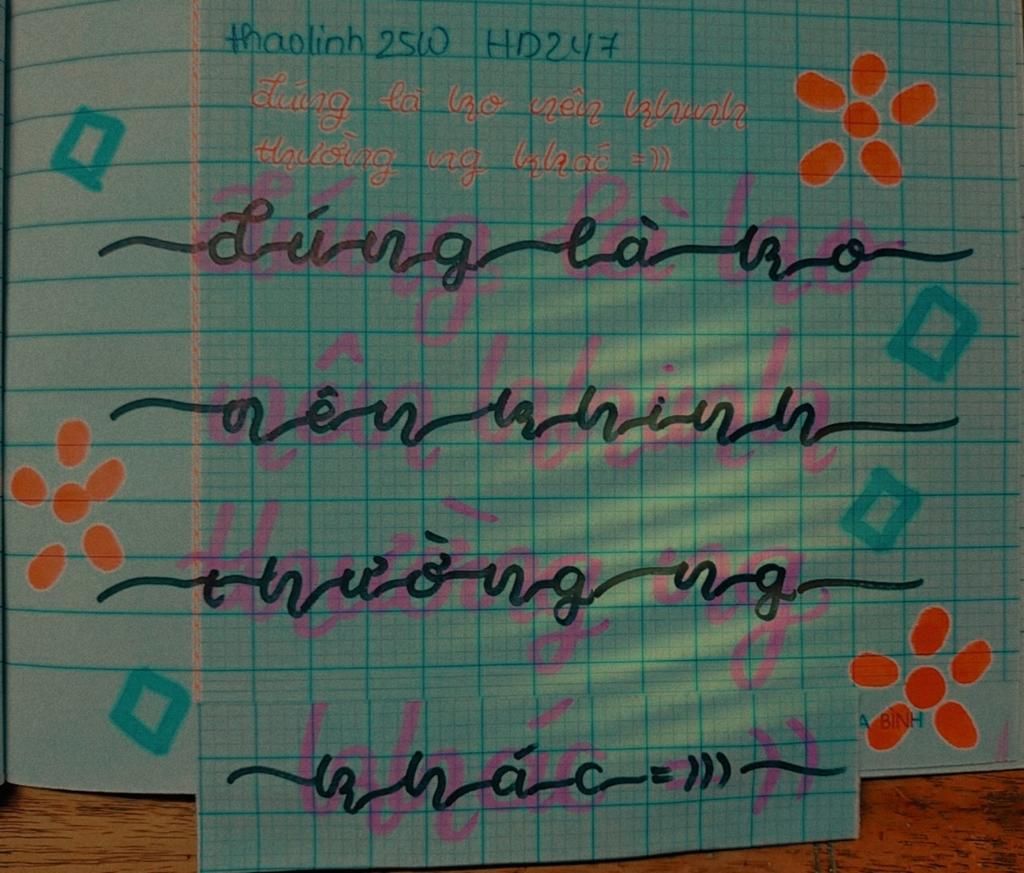 thaolinh 25W HD247
đúng là ko nên khunh
thường ng khác =))
đúng là ko
nên khinh
thường ng
khác =)))
A BÌNH